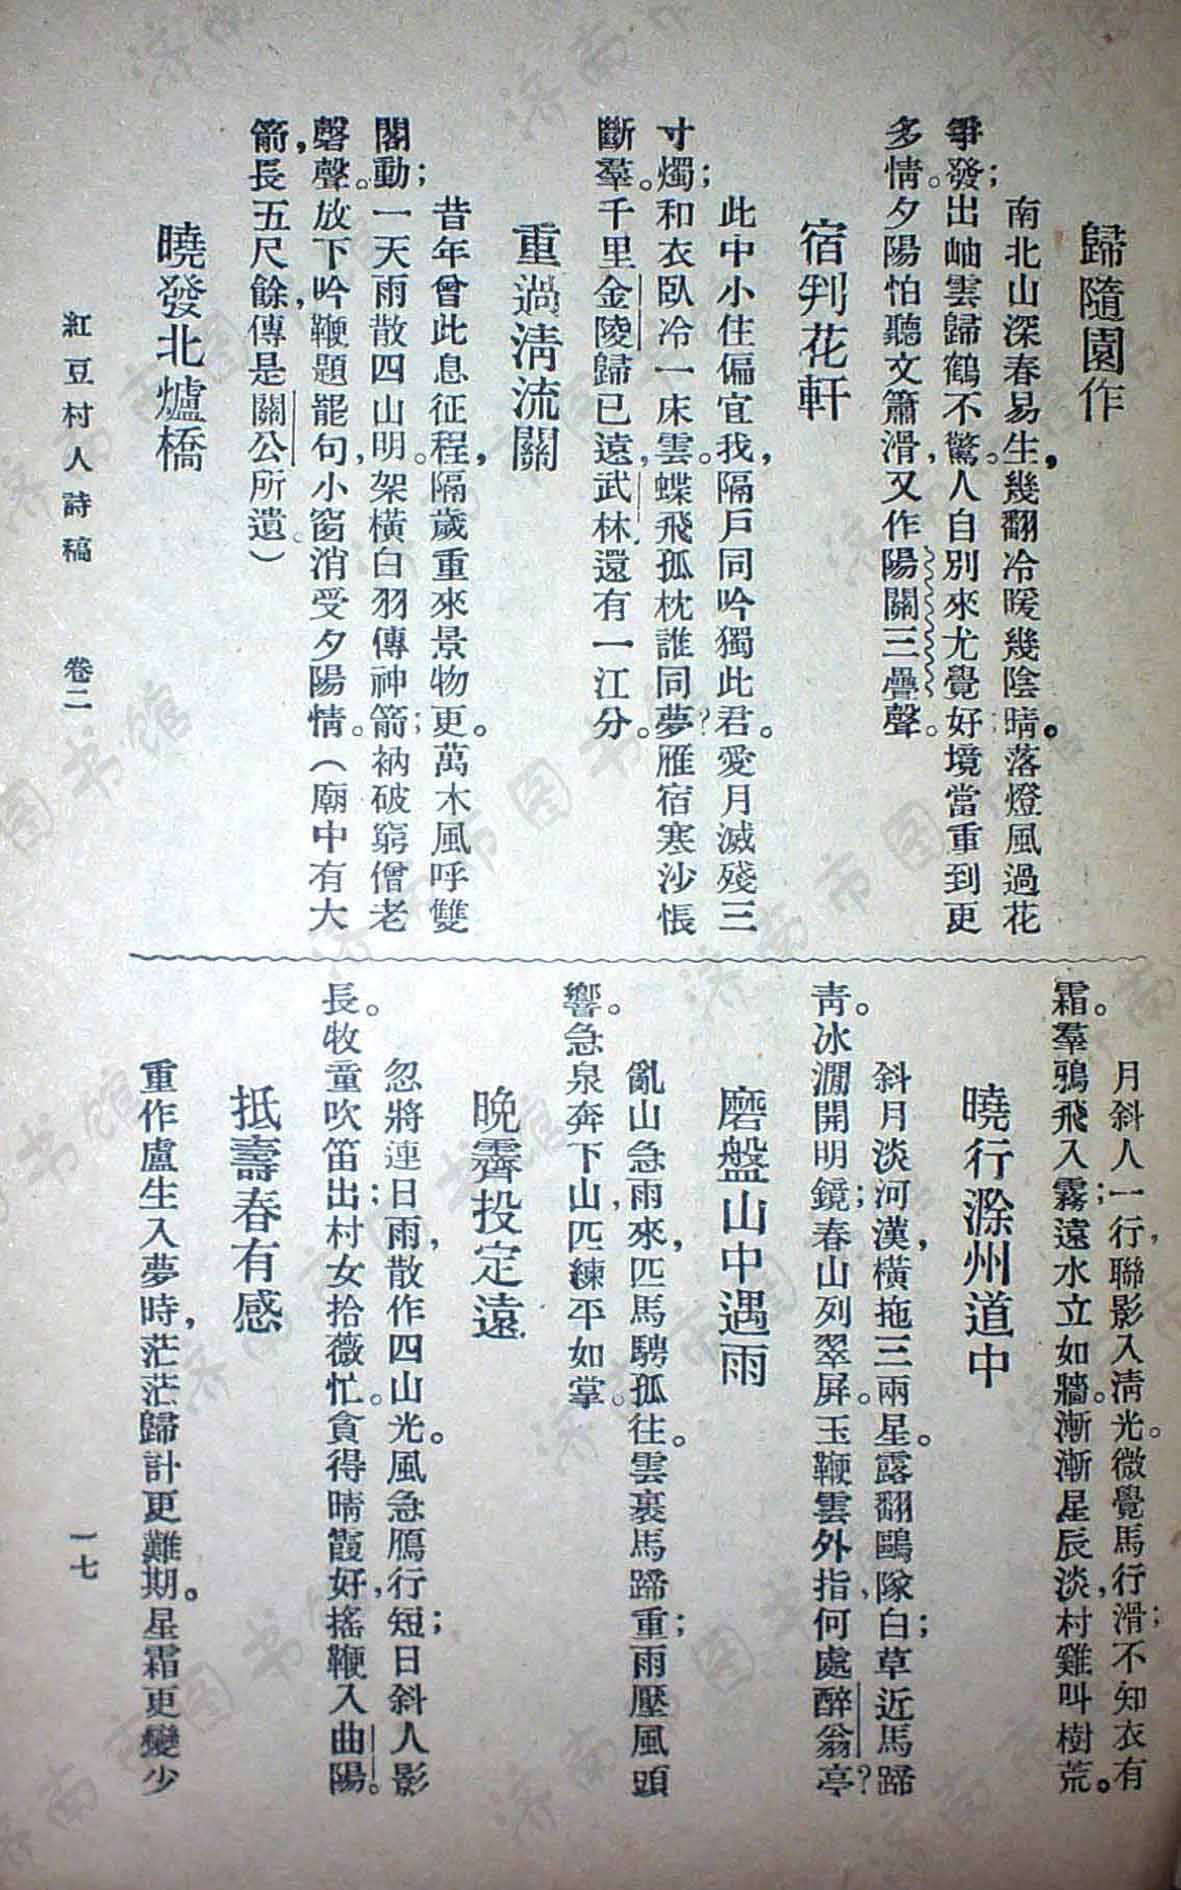 歸隨園作
南北山深春易生，幾翻冷暖幾陰晴。落燈風過花
爭發；出岫雲歸鶴不驚。人自別來尤覺好；境當重到更
多情。夕陽怕聽文簫滑，又作陽關三疊聲。
宿判花軒
此中小住偏宜我，隔戶同吟獨此君。愛月滅殘三
寸燭；和衣臥冷一床雲。蝶飛孤枕誰同夢？雁宿寒沙悵
斷羣。千里金陵歸已遠，武林還有一江分。
重過清流關
昔年曾此息征程，隔歲重來景物更。萬木風呼雙
閣動；一天雨散四山明。架橫白羽傳神箭；衲破窮僧老
磬聲。放下吟鞭題罷句，小窗消受夕陽情。（廟中有大
箭，長五尺餘，傳是關公所遺。）
曉發北爐橋
月斜人一行，聯影入清光。微覺馬行滑；不知衣有
霜。羣鴉飛入霧；遠水立如牆。漸漸星辰淡，村雞叫樹荒。
曉行滁州道中
斜月淡河漢，橫拖三兩星。露翻鷗隊白；草近馬蹄
青。冰澗開明鏡；春山列翠屏。玉鞭雲外指，何處醉翁亭？
磨盤山中遇雨
亂山急雨來，匹馬騁孤往。雲裏馬蹄重；雨壓風頭
響。急泉奔下山，匹練平如掌。
晚霽投定遠
忽將連日雨，散作四山光。風急鴈行短；日斜人影
長。牧童吹笛出；村女拾薇忙。貪得晴霞好，搖鞭入曲陽。
抵壽春有感
重作盧生入夢時，茫茫歸計更難期。星霜更變少
紅豆村人詩稿　卷二　一七